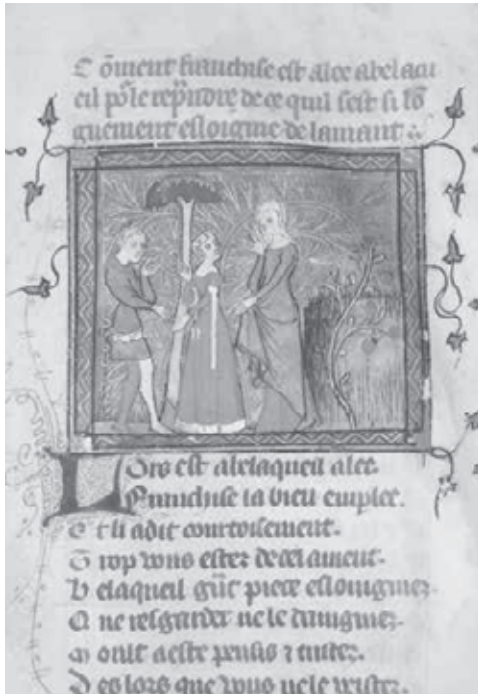 Cõment franchise est alee a belacu
eil põ le rep̃ndre de ce quil sest si lõ
guement esloigne de lamant
Lors est a belaqueil alee
Franchise la bien emplee.
Et li a dit courtoisement.
Trop vous estez de cel amant.
Belaqueil g̃nt piece esloingniez
Qua ne resgarder ne le daingniez.
Moult a este pensis et
Des lors que vous ne le